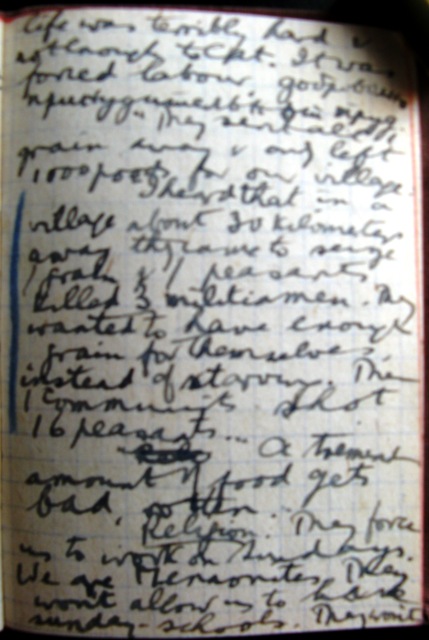 life was terribly hard &
not enough to eat. It was
forced labour,
They sent all our
grain away & only left
1000 poods for our village.
I heard that in a
village about 30 kilometers
away they came to seize
grain & peasants
killed 3 militiamen. They
wanted to have enough
grain for themselves
instead of starving. Then
Communists shot
16 peasants...
A tremend
amount of food gets
bad, rotten.
Religion. They force
us to work on Sundays.
We are Mennonites. They
won't allow us to have
Sunday-schools. They won't